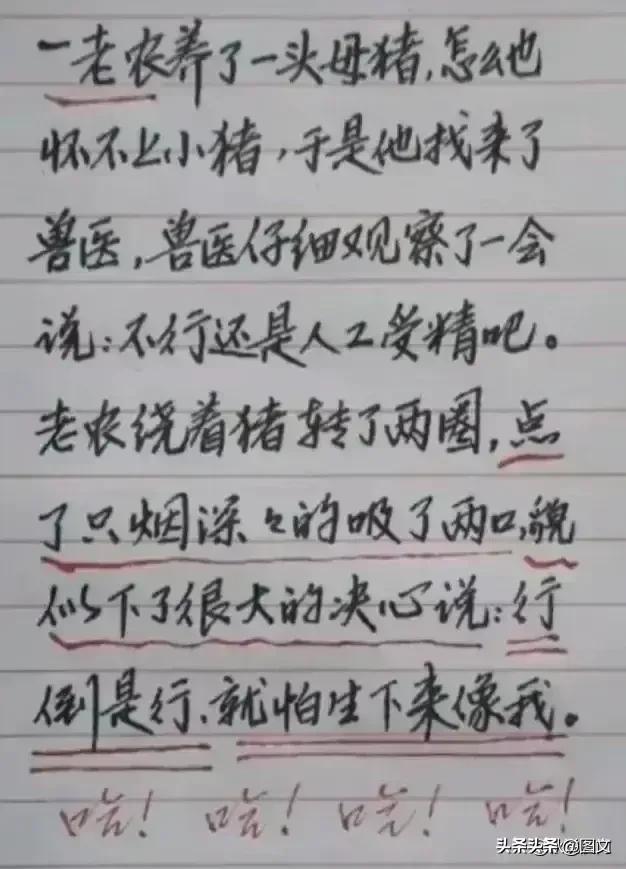 一老农养了一头母猪,怎么也
怀不上小猪,于是他找来了
兽医,兽医仔细观察了一会
说:不行还是人工受精吧。
老农绕着猪转了两圈,点
了只烟深々的吸了两口,貌
似下了很大的决心说:行
倒是行、就怕生下来像我。
哈! 哈! 哈! 哈!
头条头条@图文